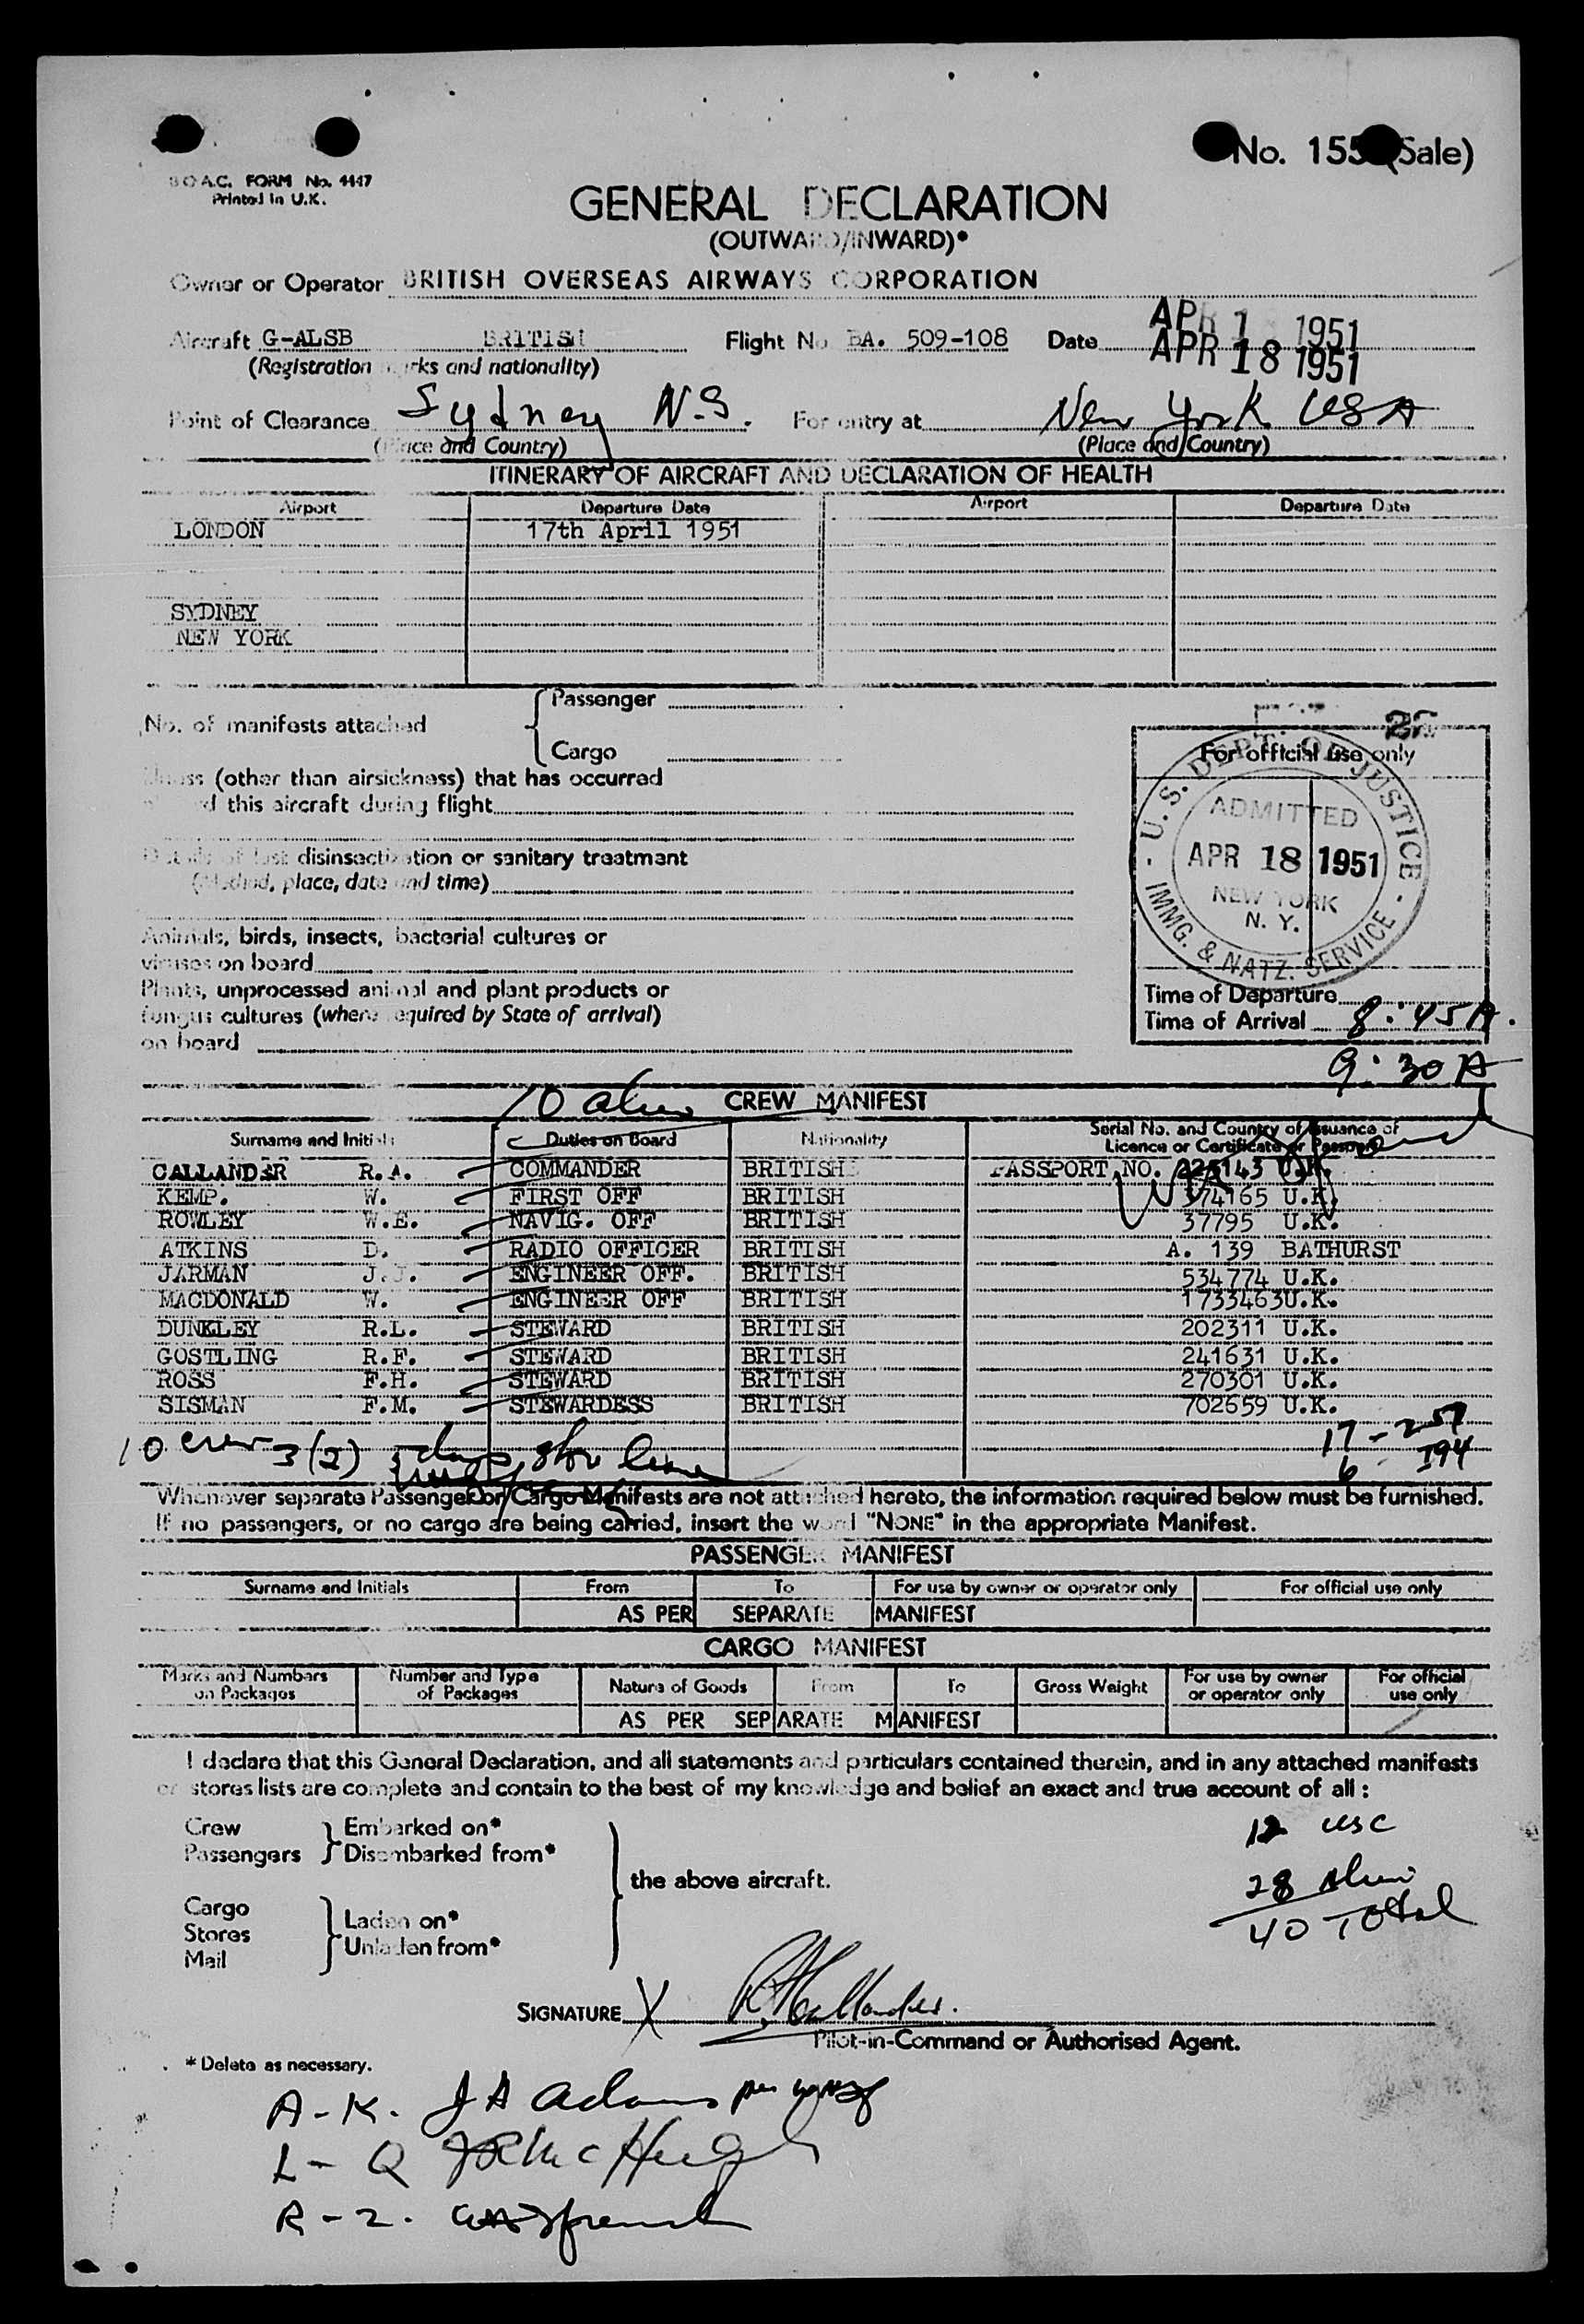 No. 155 (Sale)
B.O.A.C. FORM No. 4447
Printed in U.K.
GENERAL DECLARATION
(OUTWARD/INWARD)*
Owner or Operator BRITISH OVERSEAS AIRWAYS CORPORATION
Aircraft G-ALSB BRITISH Flight No BA. 509-108 Date APR 1 1951
APR 18 1951
(Registration marks and nationality)
Point of Clearance Sydney N.S. For entry at New York USA
(Place and Country) (Place and Country)
ITINERARY OF AIRCRAFT AND DECLARATION OF HEALTH
Airport Departure Date Airport Departure Date
LONDON 17th April 1951
SYDNEY
NEW YORK
Passenger
No. of manifests attached
Cargo
For official use only
Illness (other than airsickness) that has occurred
on board this aircraft during flight
Details of last disinsectization or sanitary treatment
(Method, place, date and time)
U.S. DEPT. OF JUSTICE
ADMITTED
APR 18 1951
NEW YORK
N. Y.
IMMG. & NATZ. SERVICE
Animals, birds, insects, bacterial cultures or
viruses on board
Plants, unprocessed animal and plant products or
fungus cultures (where required by State of arrival)
on board
Time of Departure
Time of Arrival 8:45A.
9:30A
10 alien CREW MANIFEST
Surname and Initials Duties on Board Nationality Serial No. and Country of Issuance of
Licence or Certificate or Passport
CALLANDER R.A. COMMANDER BRITISH PASSPORT NO. 225143 U.K.
KEMP. W. FIRST OFF BRITISH 374165 U.K.
ROWLEY W.E. NAVIG. OFF BRITISH 37795 U.K.
ATKINS D. RADIO OFFICER BRITISH A. 139 BATHURST
JARMAN J.J. ENGINEER OFF. BRITISH 534774 U.K.
MACDONALD W. ENGINEER OFF BRITISH 1733463U.K.
DUNKLEY R.L. STEWARD BRITISH 202311 U.K.
GOSTLING R.F. STEWARD BRITISH 241631 U.K.
ROSS F.H. STEWARD BRITISH 270301 U.K.
SISMAN F.M. STEWARDESS BRITISH 702659 U.K.
10 crew 3(2) 5 days shore leave
17 - 257
6 - I94
Whenever separate Passenger or Cargo Manifests are not attached hereto, the information required below must be furnished.
If no passengers, or no cargo are being carried, insert the word "NONE" in the appropriate Manifest.
PASSENGER MANIFEST
Surname and Initials From To For use by owner or operator only For official use only
AS PER SEPARATE MANIFEST
CARGO MANIFEST
Marks and Numbers on Packages Number and Type of Packages Nature of Goods From To Gross Weight For use by owner or operator only For official use only
AS PER SEPARATE MANIFEST
I declare that this General Declaration, and all statements and particulars contained therein, and in any attached manifests
or stores lists are complete and contain to the best of my knowledge and belief an exact and true account of all :
Crew Embarked on*
Passengers Disembarked from*
the above aircraft.
Cargo
Stores Laden on*
Mail Unladen from*
12 USC
28 Alien
40 Total
SIGNATURE X R A Callander.
Pilot-in-Command or Authorised Agent.
* Delete as necessary.
A-K. J A Adams per
L-Q McHugh
R-Z.